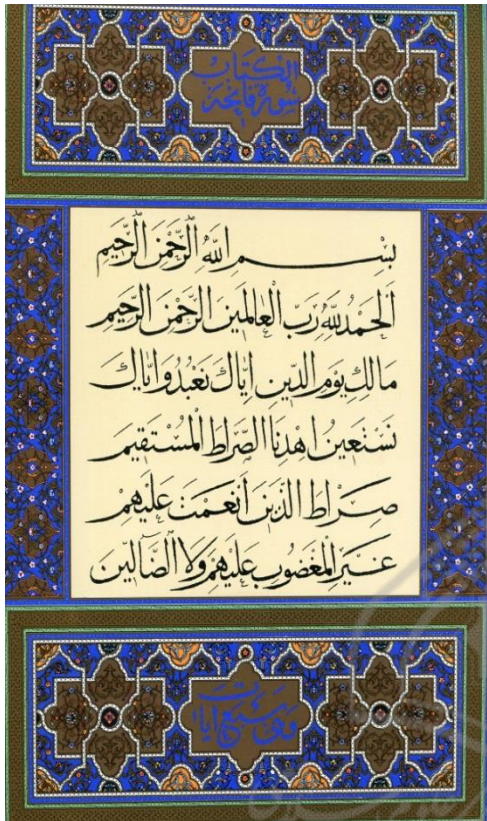 سورة فاتحة الكتاب
بِسْمِ اللهِ الرَّحْمٰنِ الرَّحِيمِ
اَلْحَمْدُ لِلّٰهِ رَبِّ الْعَالَمِينَ الرَّحْمٰنِ الرَّحِيمِ
مَالِكِ يَوْمِ الدِّينِ اِيَّاكَ نَعْبُدُ وَاِيَّاكَ
نَسْتَعِينُ اِهْدِنَا الصِّرَاطَ الْمُسْتَقِيمَ
صِرَاطَ الَّذِينَ أَنْعَمْتَ عَلَيْهِمْ
غَيْرِ الْمَغْضُوبِ عَلَيْهِمْ وَلَا الضَّالِّينَ
وهي سبع آيات